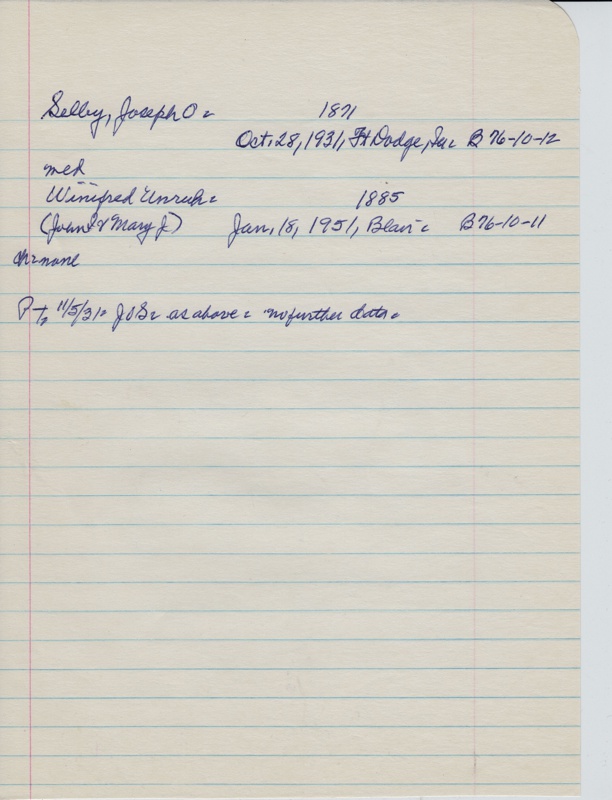 Selby, Joseph O. 1871
Oct. 28, 1931, Ft Dodge, Ia. B 76-10-12
med
Winifred Unruh. 1885
(John & Mary J.) Jan, 18, 1951, Blair. B 76-10-11
ch: none
P T, 11/5/31. J O S. as above. no further data.